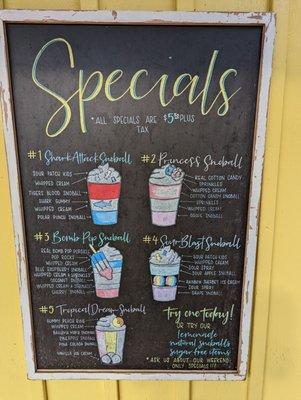 Specials
*ALL SPECIALS ARE $5⁵⁰ PLUS
TAX
#1 Shark Attack Snoball
SOUR PATCH KIDS
WHIPPED CREAM
TIGERS BLOOD SNOBALL
SHARK GUMMY
WHIPPED CREAM
POLAR PUNCH SNOBALL
#2 Princess Snoball
REAL COTTON CANDY
SPRINKLES
WHIPPED CREAM
SNOBALL
SPRINKLES
WHIPPED CREAM
SNOBALL
#3 Bomb Pop Snoball
REAL BOMB POP
POP ROCKS
WHIPPED CREAM
BLUE RASPBERRY SNOBALL
WHIPPED CREAM &
COCONUT SNOBALL
WHIPPED CREAM &
CHERRY SNOBALL
#4 Sour Blast Snoball
SOUR PATCH KIDS
WHIPPED CREAM
SOUR SPRAY
SOUR APPLE SNOBALL
WHIPPED CREAM
SOUR SPRAY
GRAPE SNOBALL
#5 Tropical Dream Snoball
GUMMY PEACH RING
WHIPPED CREAM
SNOBALL
PINEAPPLE SNOBALL
PINA COLADA SNOBALL
VANILLA ICE CREAM
try one today!
OR TRY OUR
lemonade
natural snoballs
sugar free items
*ASK US ABOUT OUR WEEKEND
ONLY SPECIALS!!!